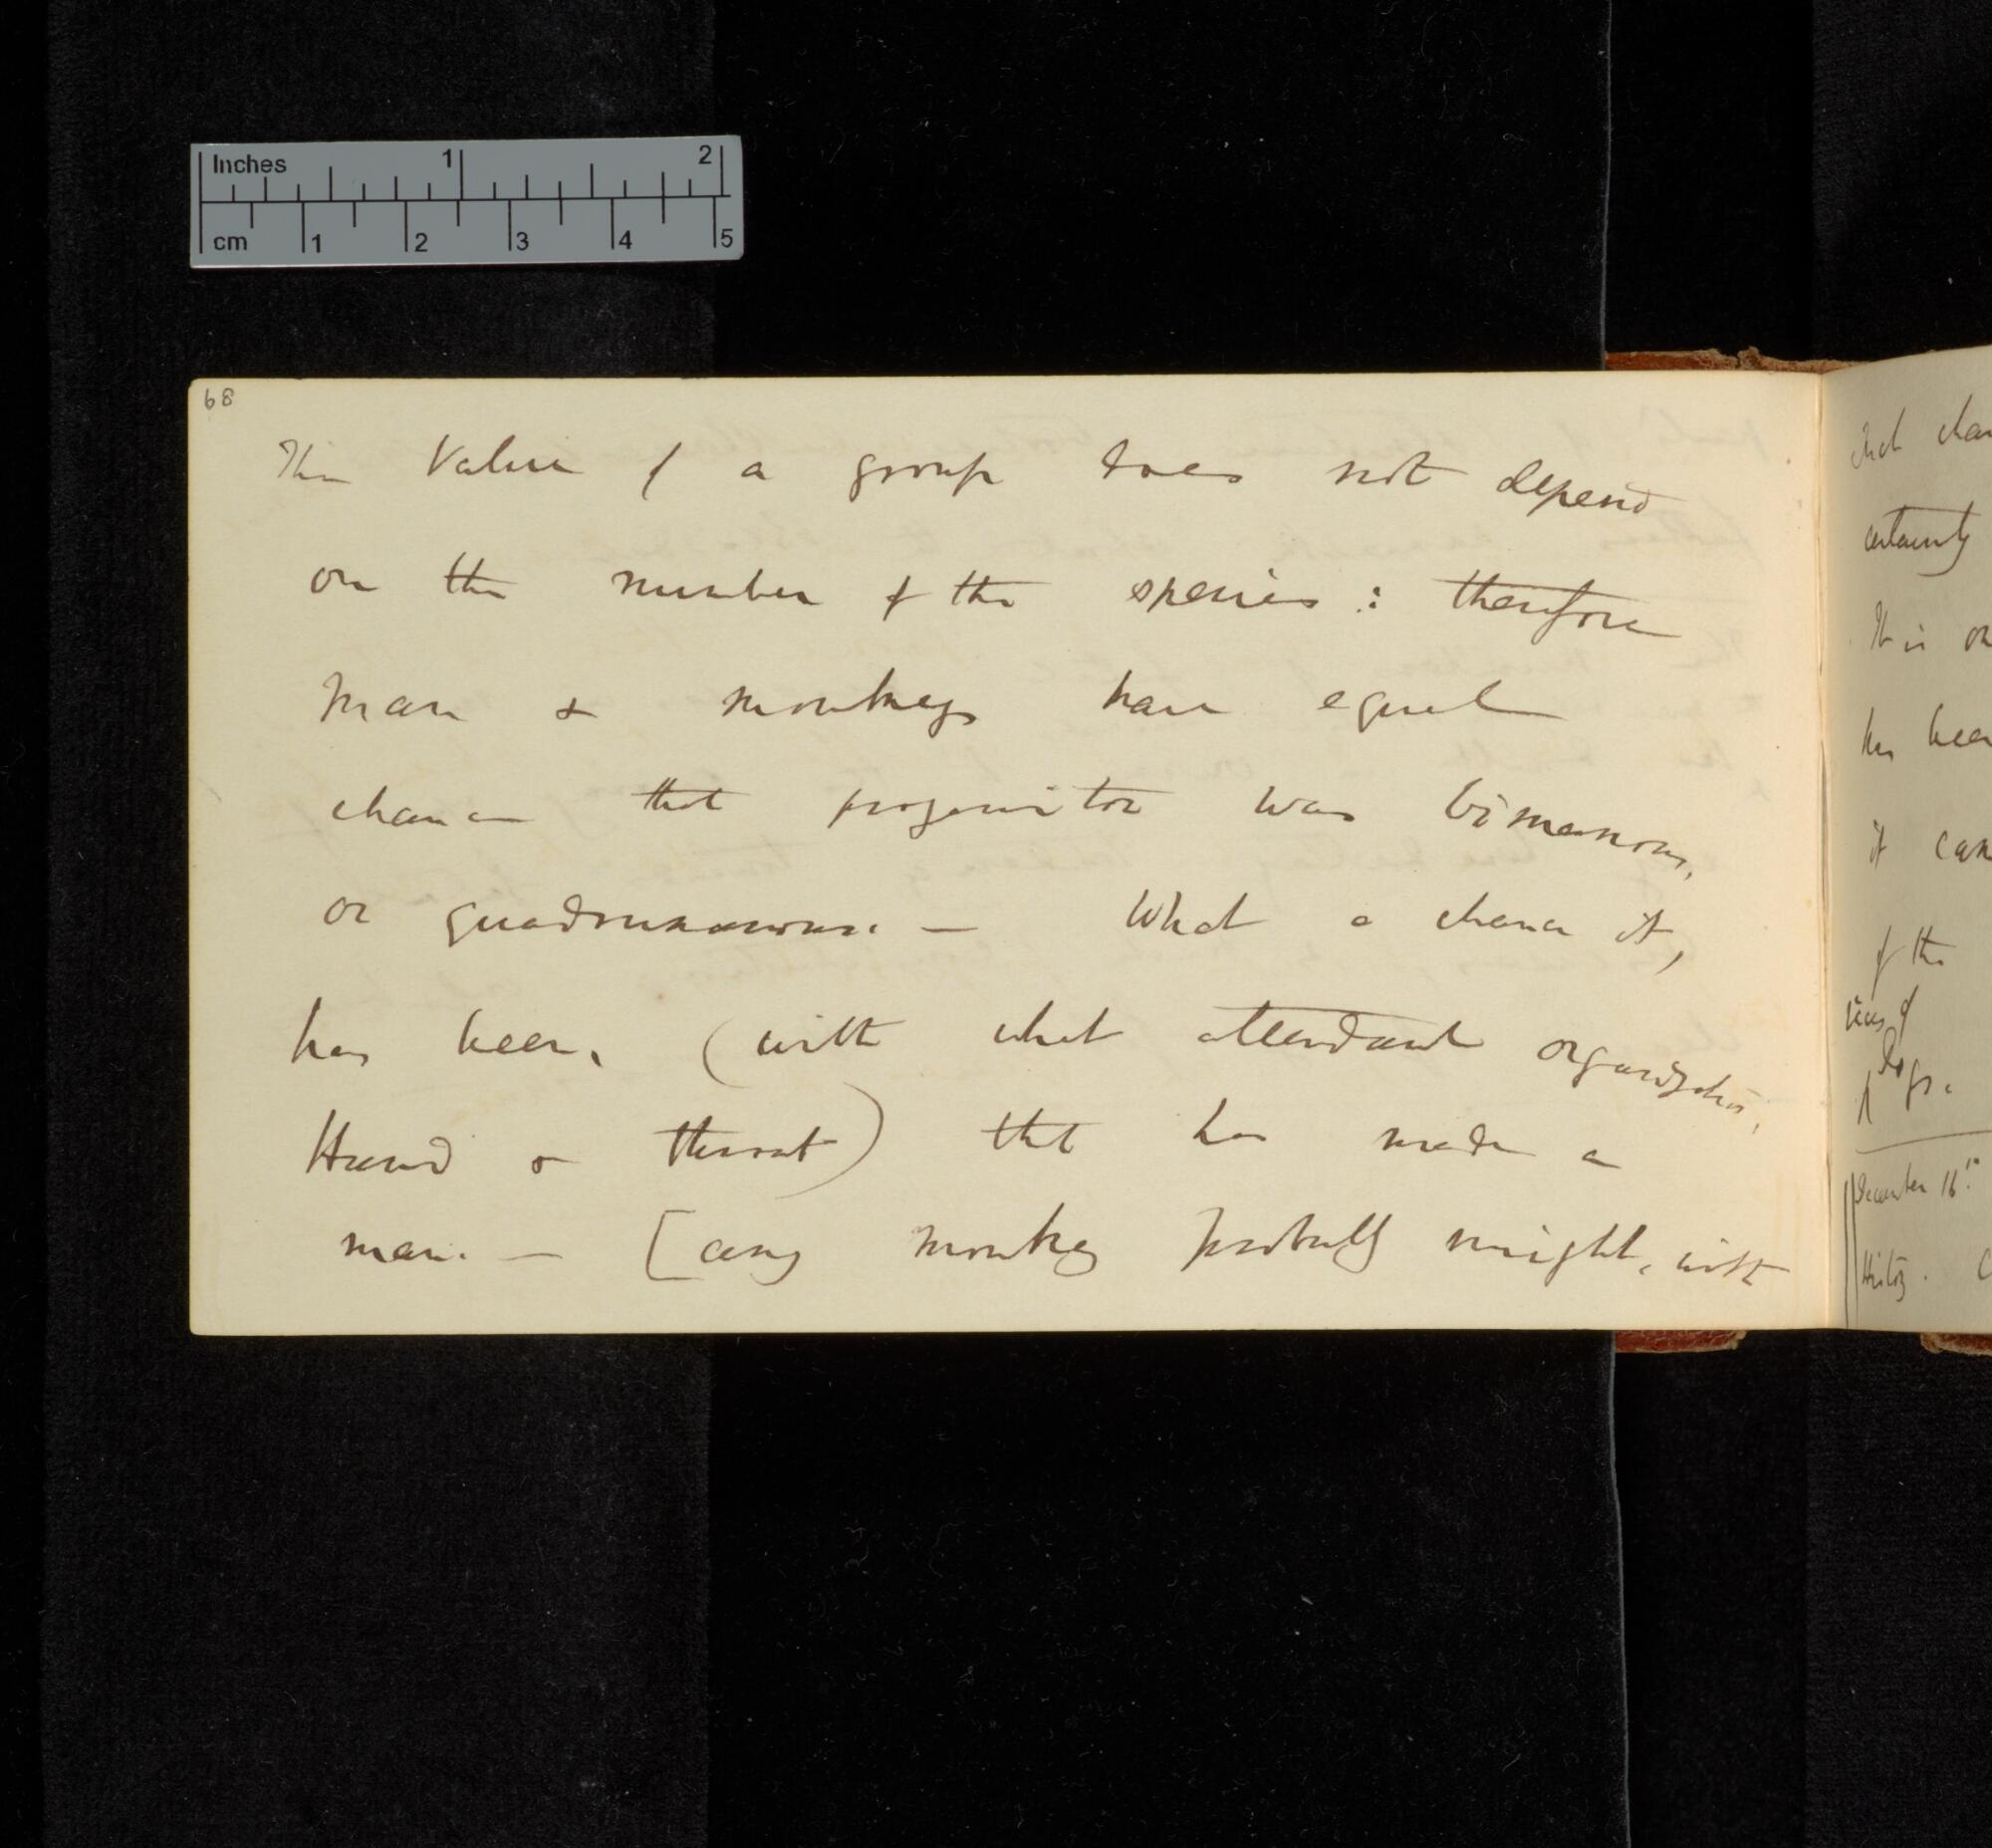 Inches 1 2
cm 1 2 3 4 5
68
The Value of a group does not depend
on the number of the species: therefore
man & monkeys have equal
chance that progenitor was bimanous,
or quadrumanous. — What a chance it,
has been, (with what attendant organization,
Hand & throat) that has made a
man. — [any monkey probably might, with
such chan
certainty
This is on
has been
it can
of the
of
dogs.
December 16th.
History. C